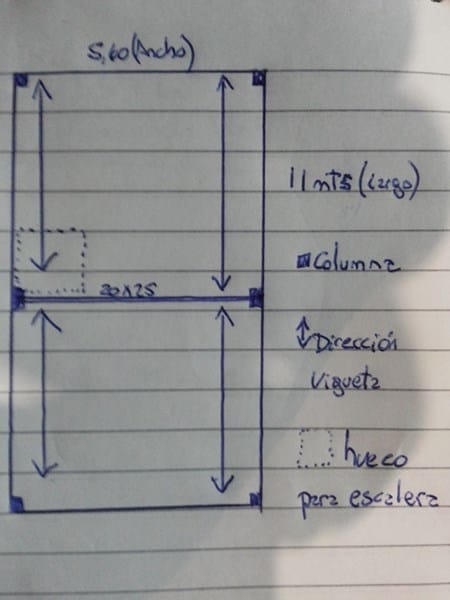 5,60 (Ancho)
11 mts (Largo)
Columna
20x25
Dirección
Vigueta
hueco
para escalera